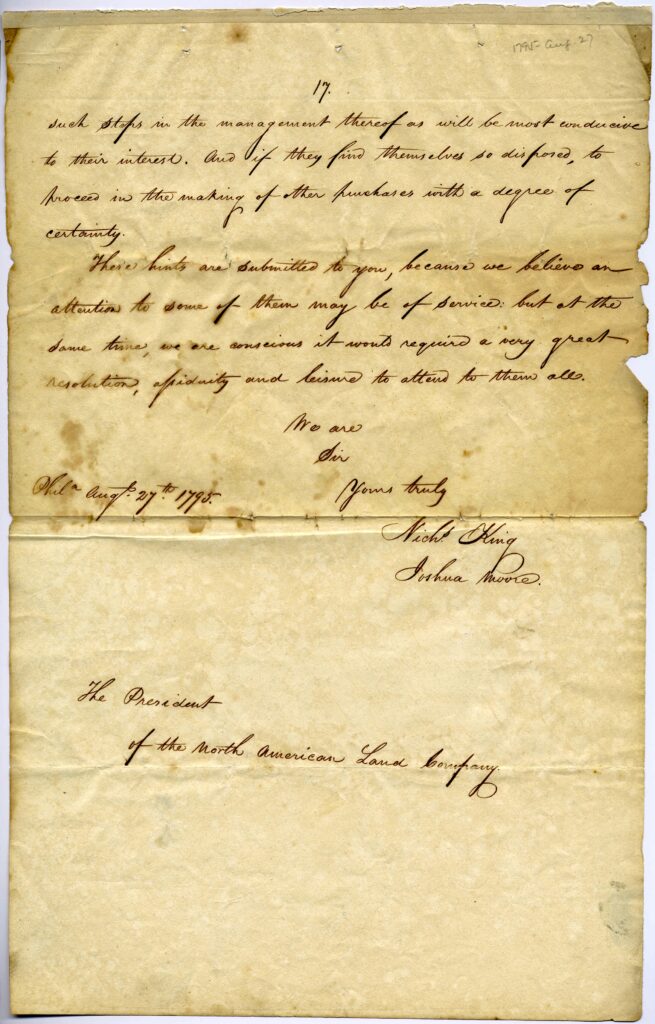 1795 Aug. 27
17.
such steps in the management thereof as will be most conducive
to their interest. And if they find themselves so disposed, to
proceed in the making of other purchases with a degree of
certainty.
These hints are submitted to you, because we believe an
attention to some of them may be of service: but at the
same time, we are conscious it would require a very great
resolution, assiduity and leisure to attend to them all.
We are
Sir
Phila. Augt. 27th. 1795. Yours truly
Nichs. King
Joshua Moore.
The President
of the North American Land Company.